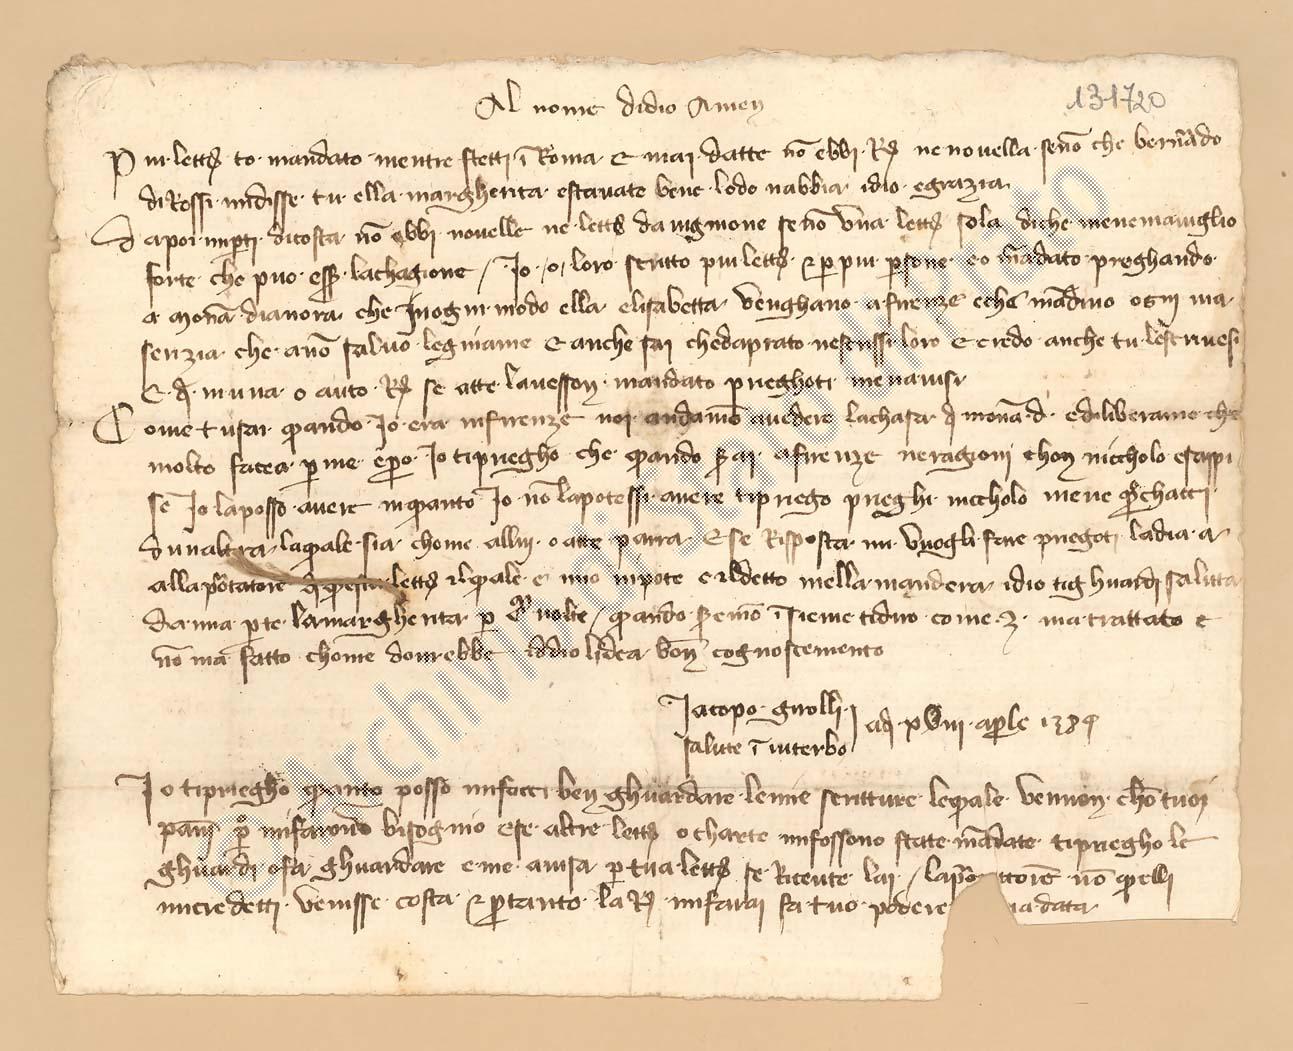 Al nome didio Amen
131720
Piu letts to mandato mentre stetti i Roma e mai datte nō ebbi Rs ne novella senō che bernādo
di Rossi midisse tu ella margherita estavate bene lodo nabbia idio egrazia
Dapoi miparti dicosta nō ebbi novelle ne letts da vignione se nō una letts sola diche menemaviglio
forte che puo essere lachagione / Io o loro scritto piu letts e p piu psone eo mādato preghando
a monā dianora che Inogni modo ella elisabetta venghano afirenze echē māduco ogni ma
senzia che anō salvo legniame e anche sai chedaprato nescrissi loro e credo anche tu lescrivesi
E di niuna o auto Rs se atte lavesson mandato prieghoti menavisi
Come tusai quando Io era infirenze noi andamō avedere lachasa di monā d. ediliberamo che
molto facea p me e pero Io tipriegho che quando sarai afirenze neragioni chon niccholo esappi
se Io laposso avere inquanto Io nō lapotessi avere tipriego prieghi niccholo mene perchacci
dunaltra laquale sia chome allui o atte paura E se Risposta mi vuogli fare priegoti ladia a
alla portatore letts ilquale e mio nipote e ildetto mella mandera idio tighuardi saluta
damia pte lamargherita p volte / quando saremo isieme tidiro come ma trattato e
nō ma fatto chome dovrebbe Iddio lidea bon cognoscemento
Iacopo
salute i viterbo
adi xviii aprle 138
Io tipriegho quanto posso mifacci ben ghuardare lemie scritture lequale vennon chō tuoi
panni po mifarōno bisognio ese altre letts o charte mifossono state mādate tipriegho le
ghuardi ofa ghuardare e me avisa p tua letts se Ricevute lai / nō quelli
micredetti venisse costa e ptanto la Rs mifarai fa tuo podere data
© Archivio di Stato di Prato